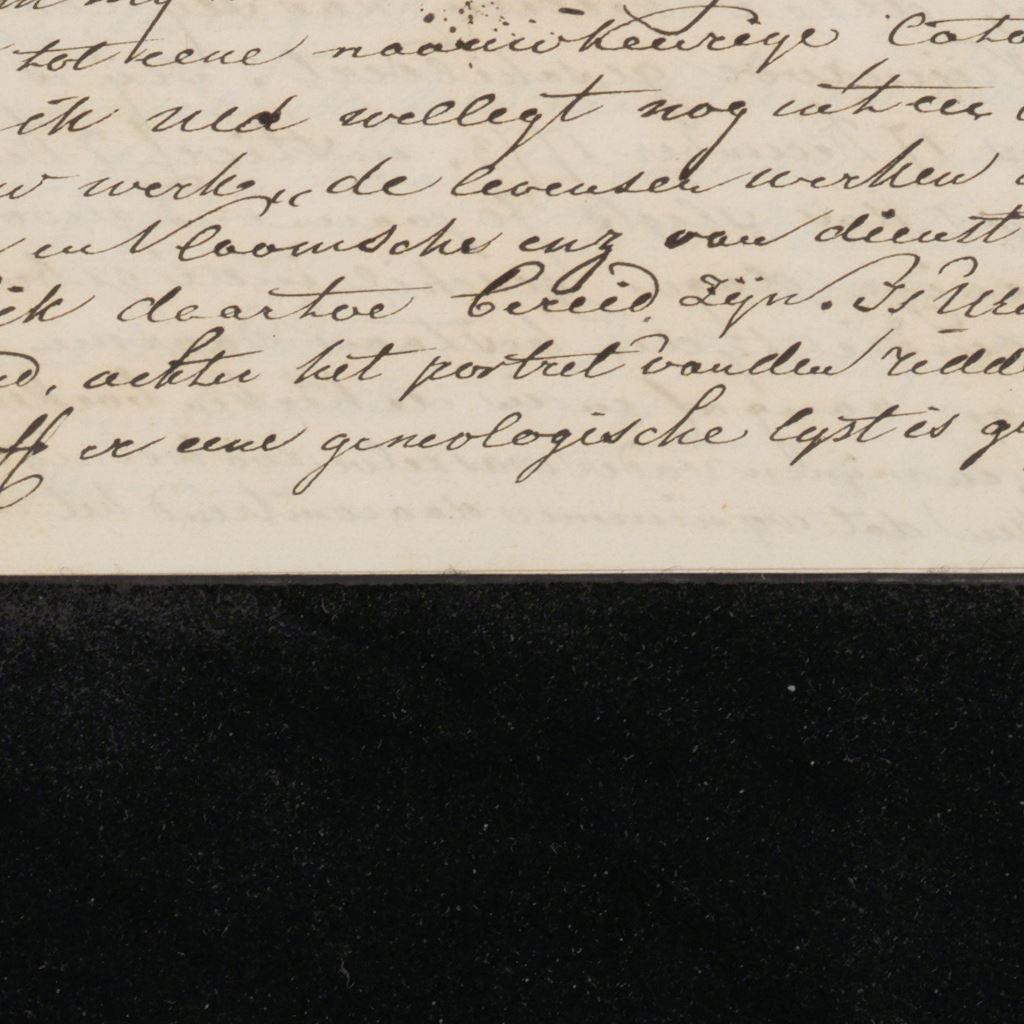 tot eene naauwkeurige Cata
ik Ued wellegt nog uit een
werk, de levensen werken
en Vlaamsche enz van dienst
ik daartoe bereid zijn. Is Ued
achter het portret vanden ridd
er eene geneologische lyst is ge